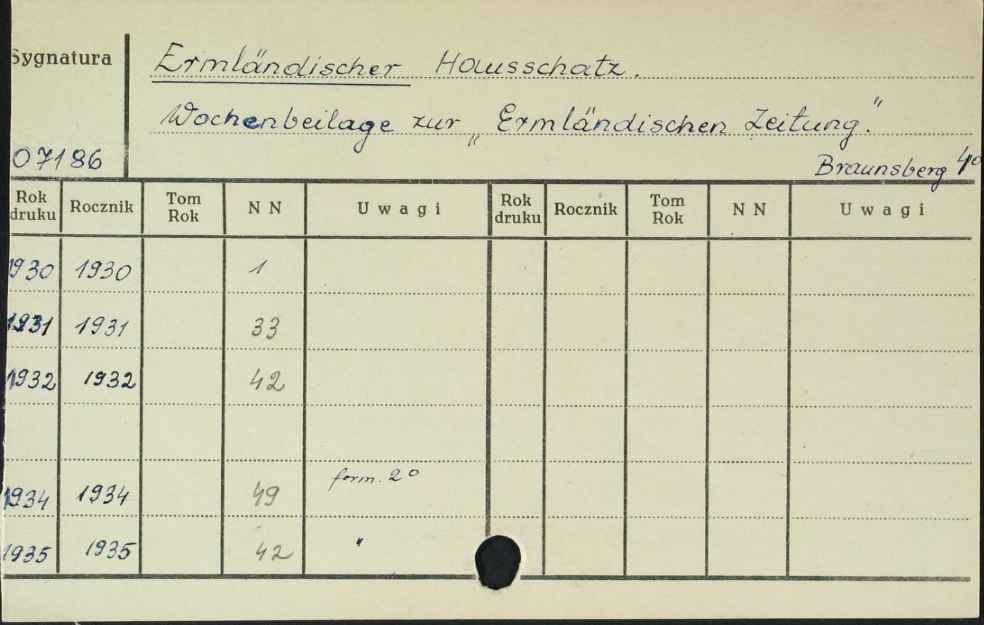 Sygnatura
Ermländischer Hausschatz.
Wochenbeilage zur „Ermländischen Zeitung.“
07186
Braunsberg 4°
Rok druku Rocznik Tom Rok N N Uwagi Rok druku Rocznik Tom Rok N N Uwagi
1930 1930 1
1931 1931 33
1932 1932 42
1934 1934 49 form. 2°
1935 1935 42 "